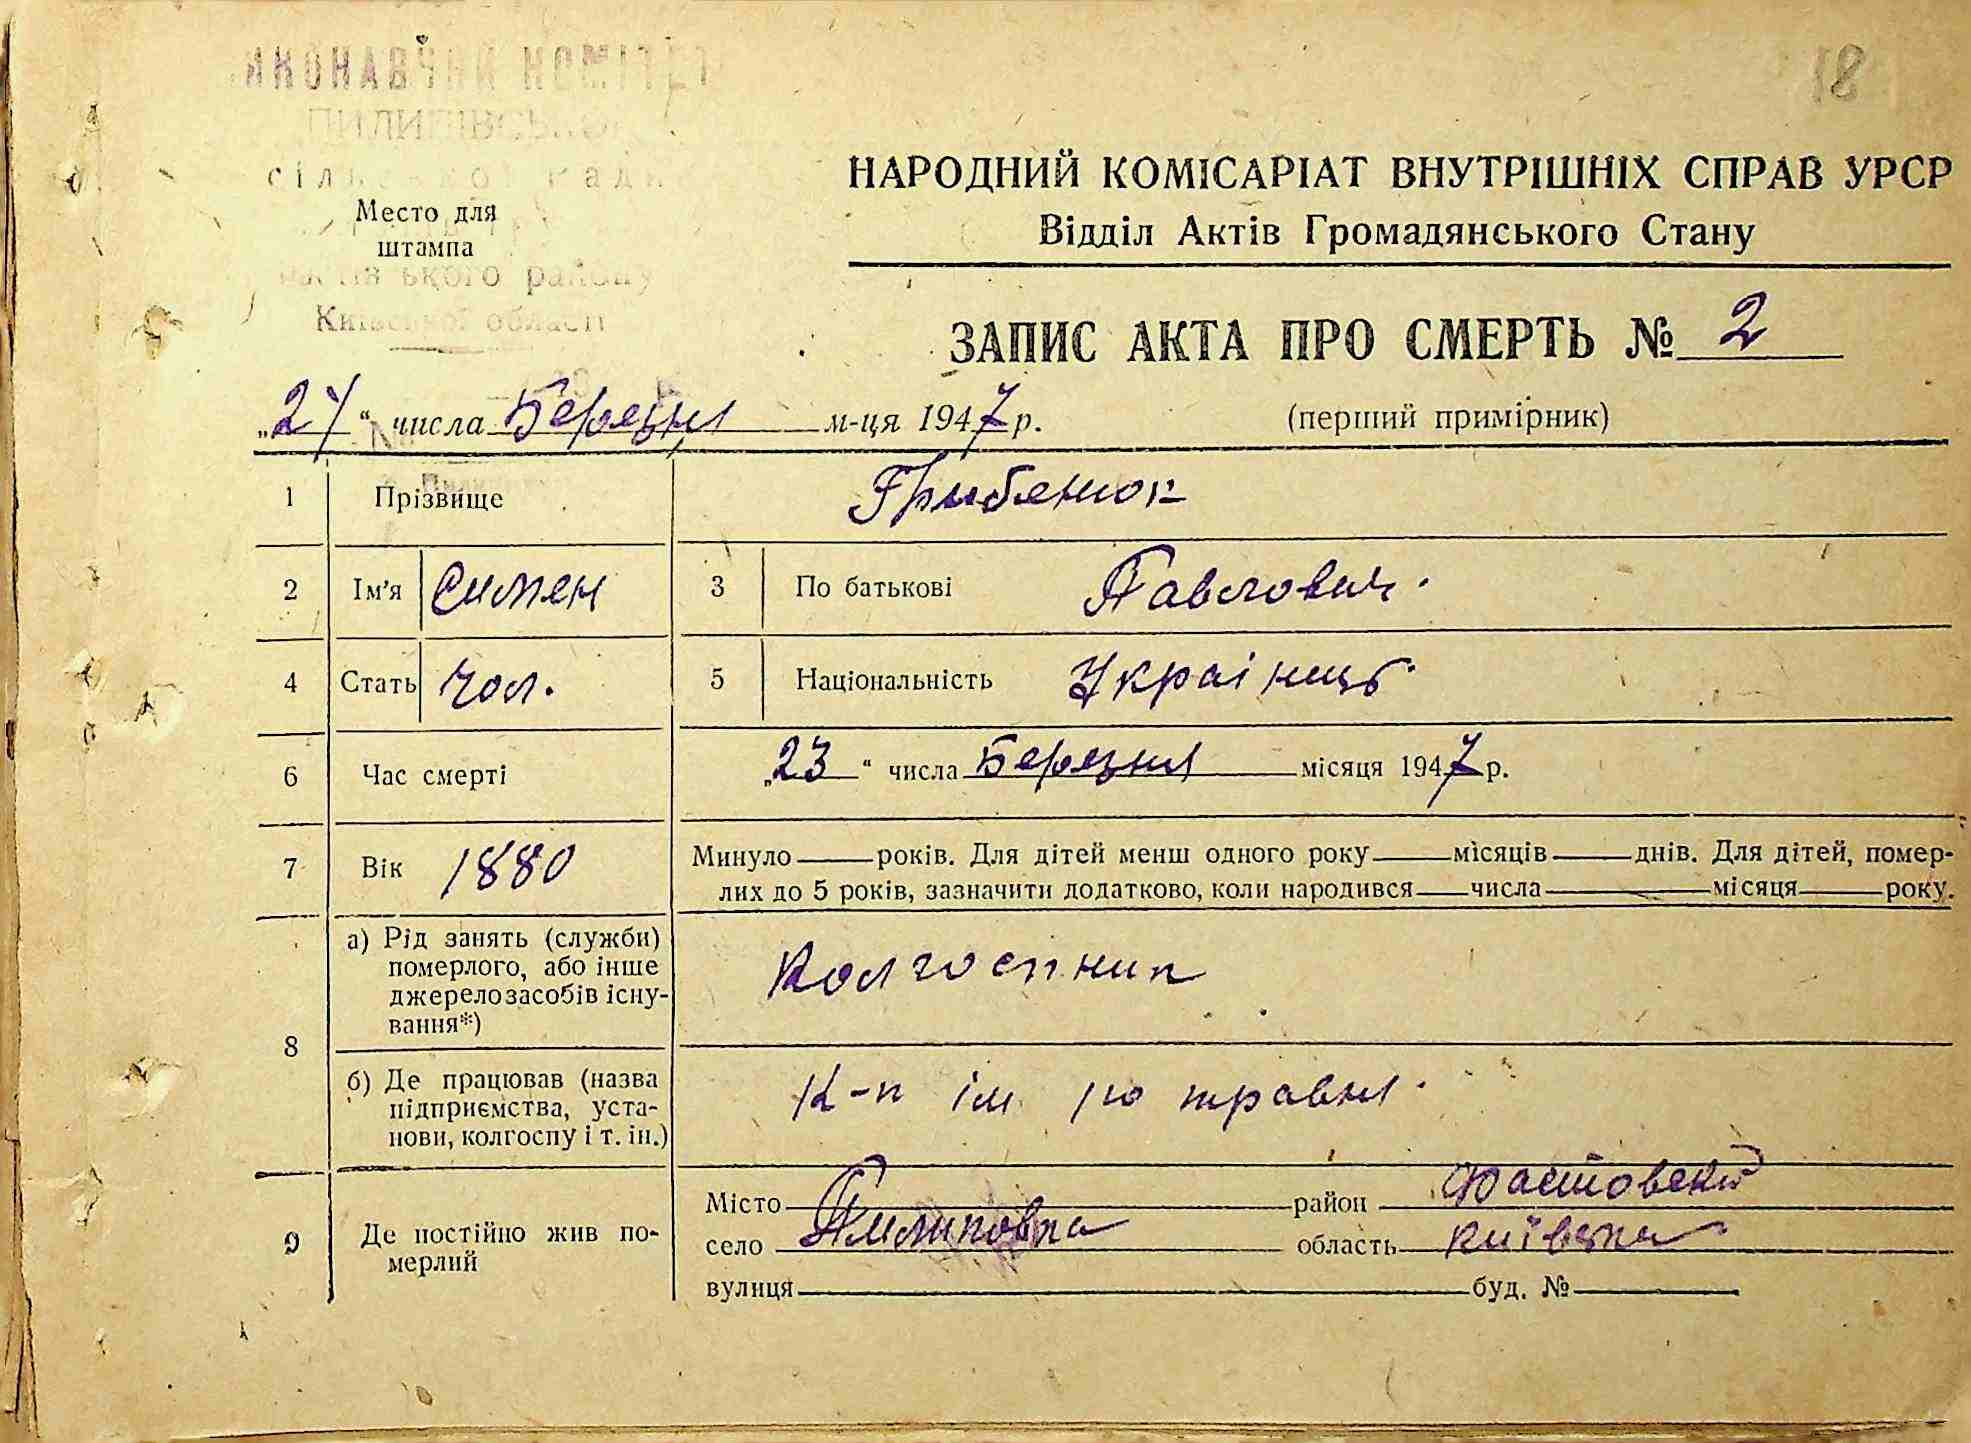 18
ПИЛИПІВСЬКОЇ
сільської ради
Место для
штампа
району
Київської області
НАРОДНИЙ КОМІСАРІАТ ВНУТРІШНІХ СПРАВ УРСР
Відділ Актів Громадянського Стану
ЗАПИС АКТА ПРО СМЕРТЬ № 2
„24“ числа Березня м-ця 1947 р. (перший примірник)
1 Прізвище Грибенюк
2 Ім’я Симен 3 По батькові Павлович.
4 Стать чол. 5 Національність Українць.
6 Час смерті „23“ числа Березня місяця 1947 р.
7 Вік 1880 Минуло років. Для дітей менш одного року місяців днів. Для дітей, помер-
лих до 5 років, зазначити додатково, коли народився числа місяця року.
8 а) Рід занять (служби)
померлого, або інше
джерело засобів існу-
вання*)
Колгоспник
б) Де працював (назва
підприємства, уста-
нови, колгоспу і т. ін.)
К-п ім 1го травня.
9 Де постійно жив по-
мерлий
Місто район Фастовский
село Пилиповка область Київська
вулиця буд. №